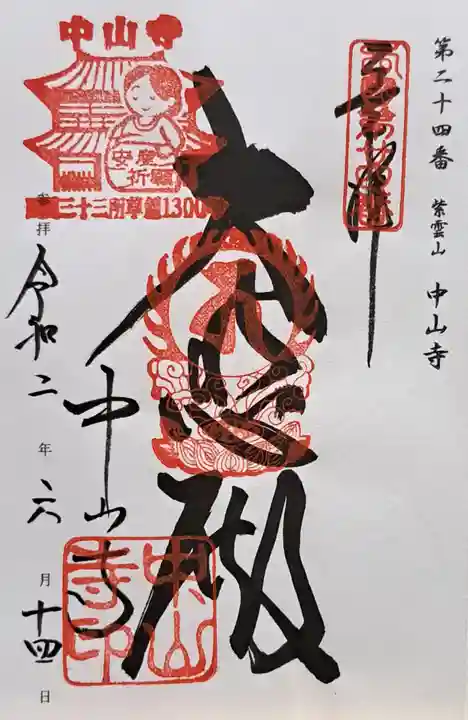 第二十四番 紫雲山 中山寺
奉拝
大悲殿
中山寺
令和二年六月十四日
中山寺
安産
祈願
三十三所草創1300年
中山
寺印